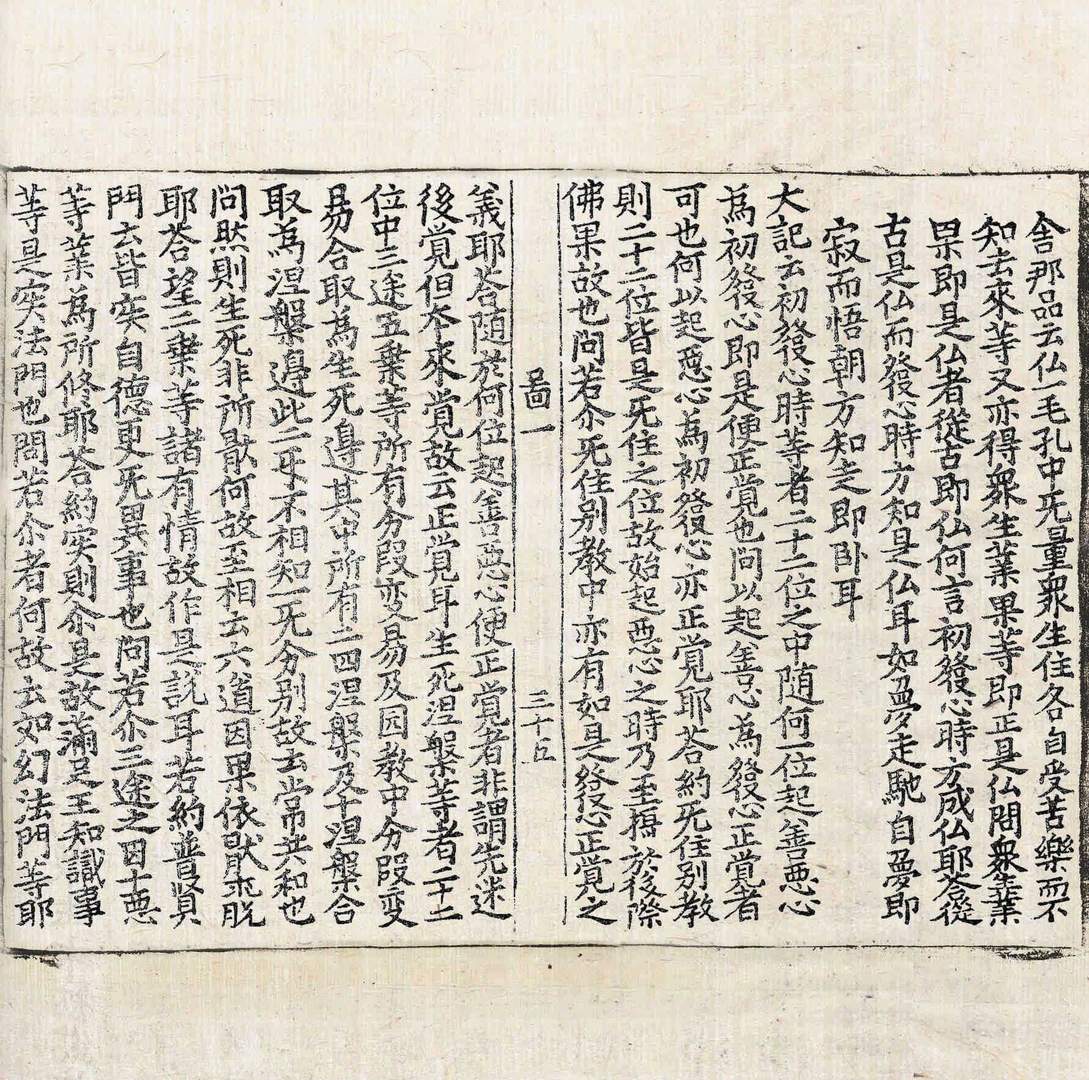 舍那品云仏一毛孔中旡量衆生住各自受苦樂而不
知去來等又亦得衆生業果等即正是仏問衆生業
果即是仏者從古即仏何言初發心時方成仏耶荅從
古是仏而發心時方知是仏耳如夤夢走馳自夢即
寂而悟朝方知走即卧耳
大記云初發心時等者二十二位之中随何一位起善悪心
為初發心即是便正覚也問以起善心為發心正覚者
可也何以起悪心為初發心亦正覚耶荅約旡住别教
則二十二位皆是旡住之位故始起悪心之時乃至搗於後際
佛果故也問若尒旡住别教中亦有如是發心正覚之
啚一
三十五
義耶荅随於何位起善悪心便正覚者非謂先迷
後覚但本來覚故云正覚耳生死涅槃等者二十二
位中三途五乗等所有分段变易及因教中分段变
易合取為生死邊其中所有二四涅槃及十涅槃合
取為涅槃邊此二互不相知一旡分别故云常共和也
問然則生死非所猒何故至相云六道因果依猒門求脱
耶荅望二乗等諸有情故作是説耳若約普賢
門云皆实自德更旡異事也問若尒三途之因十悪
等業為所修耶荅約实則尒是故滿足王知識事
等是实法門也問若尒者何故云如幻法門等耶